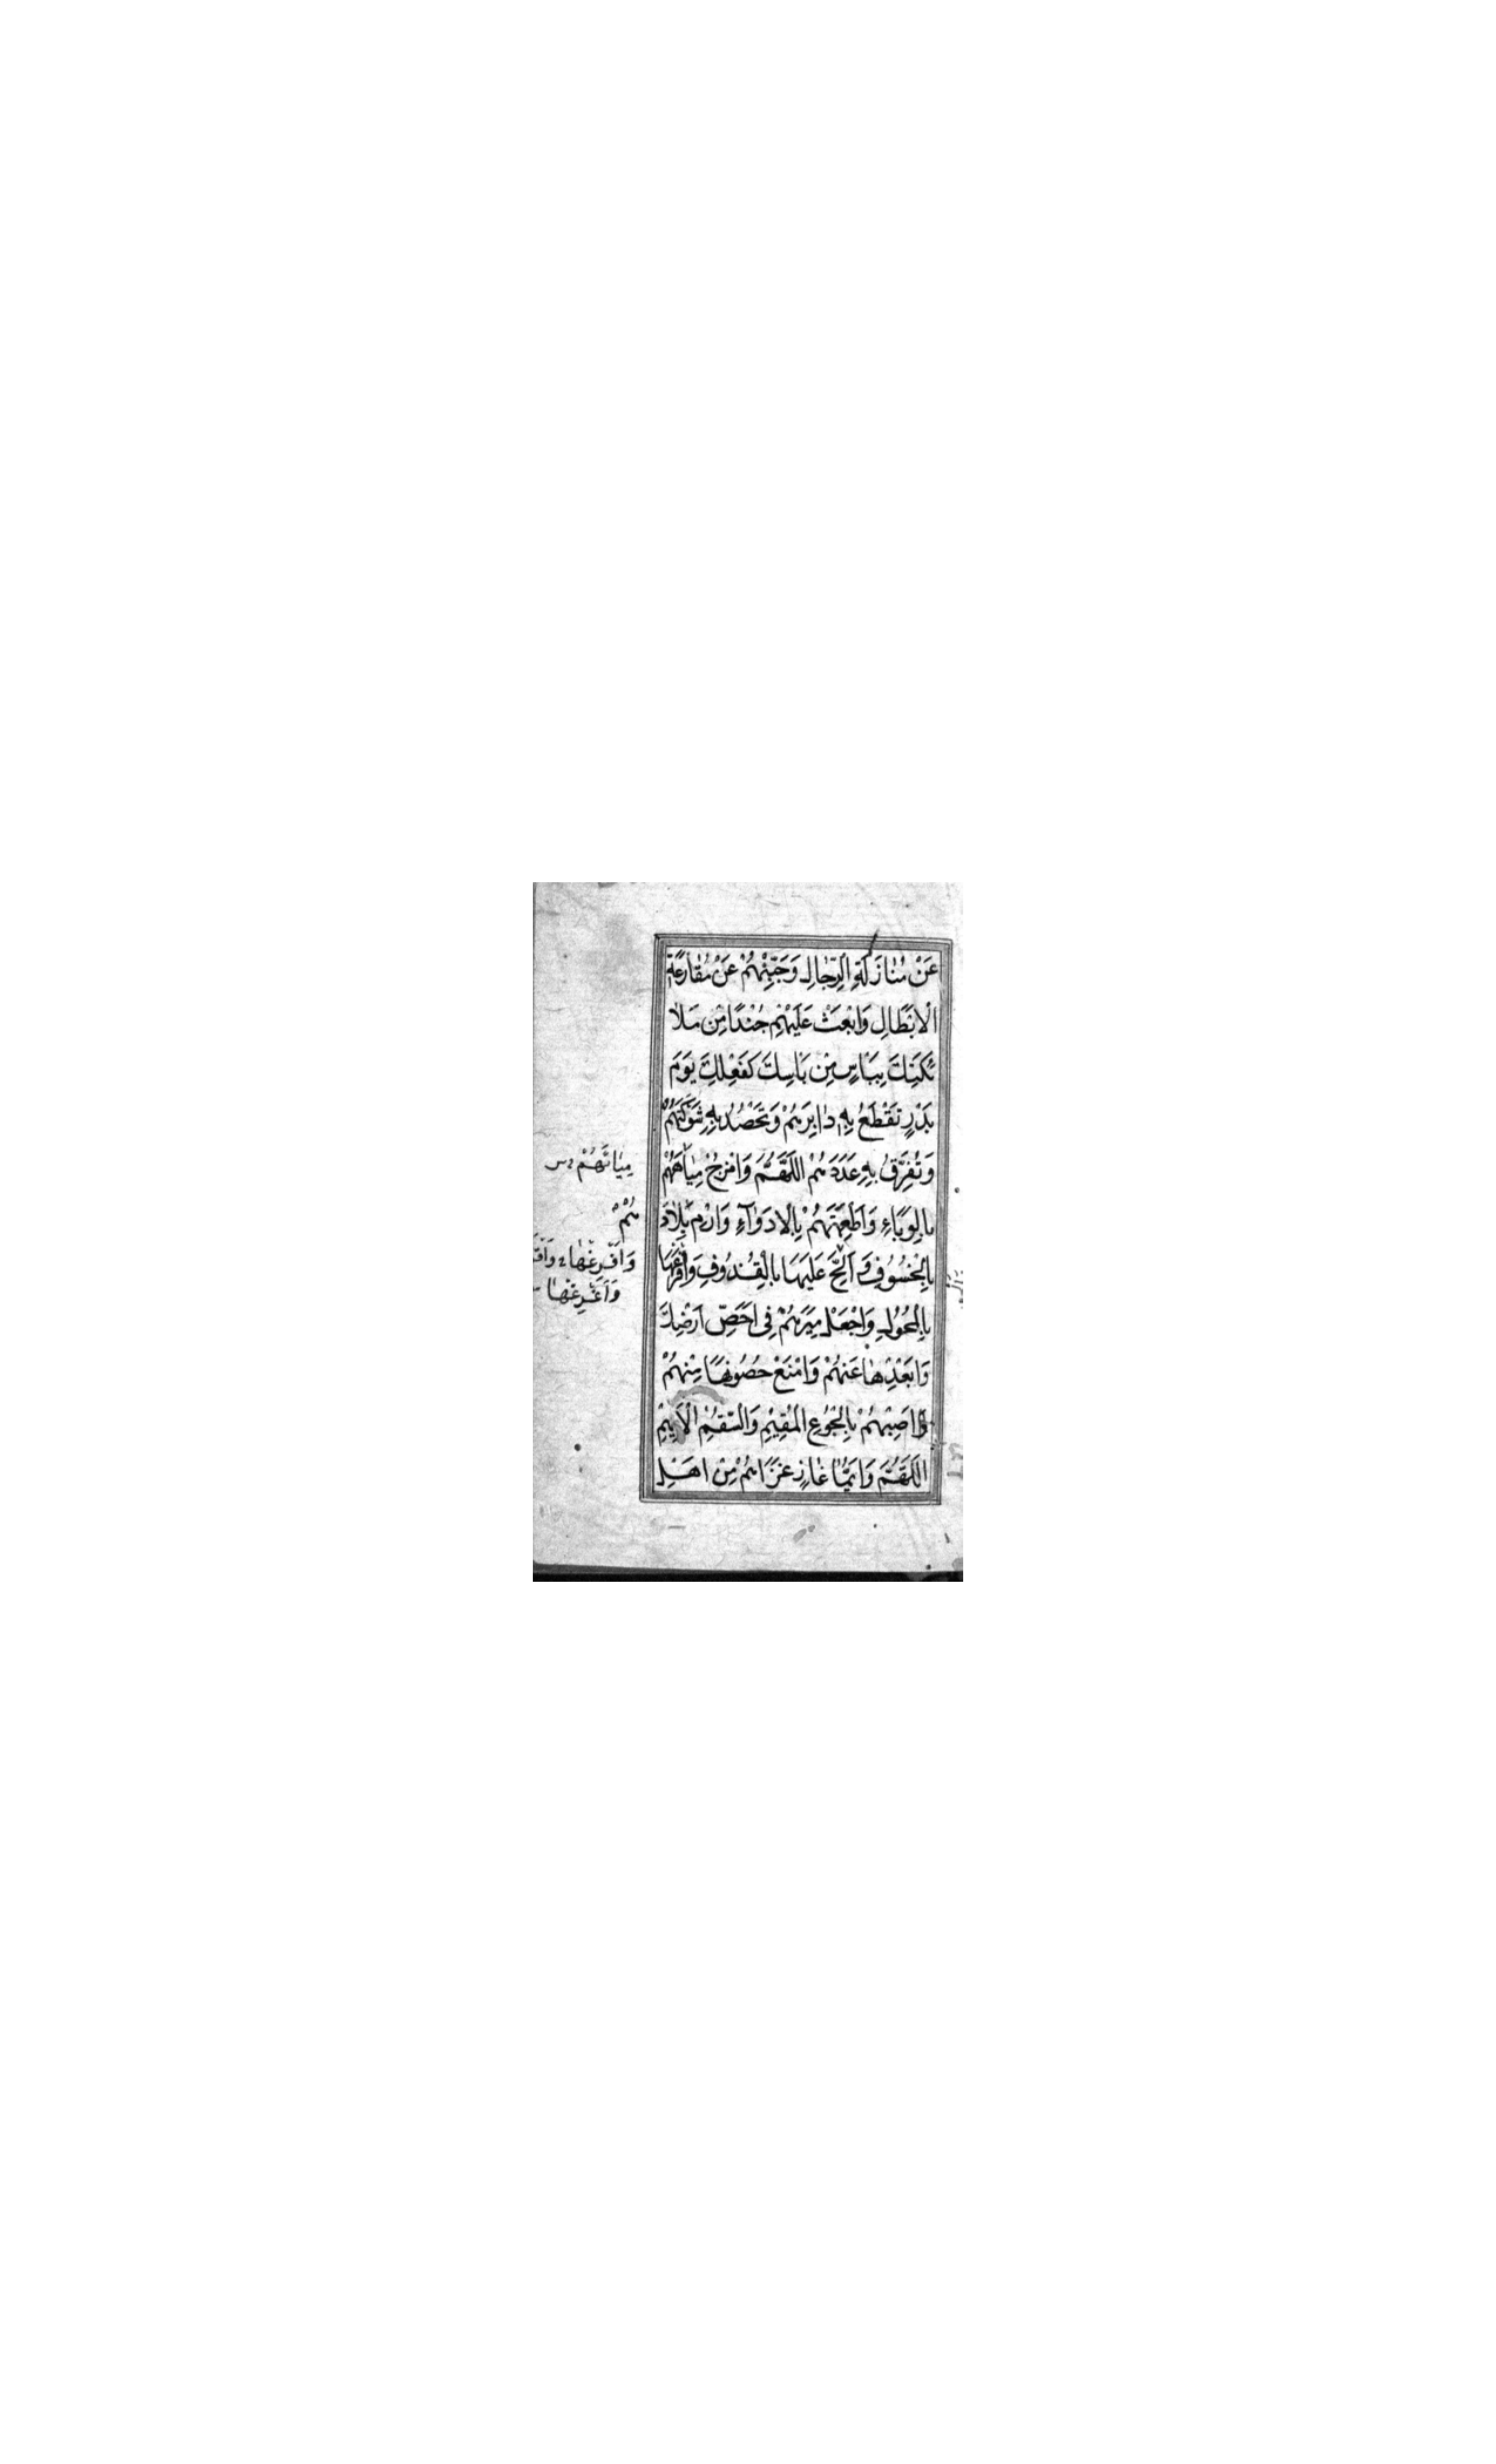 عَنْ مُنَازَلَةِ الرِّجَالِ وَجَبِّنْهُمْ عَنْ مُقَارَعَةِ
الْابْطَالِ وَابْعَثْ عَلَيْهِمْ جُنْدًا مِنْ مَلَا
ئِكَتِكَ بِبَاْسٍ مِنْ بَاْسِكَ كَفِعْلِكَ يَوْمَ
بَدْرٍ تَقْطَعُ بِهِ دَابِرَهُمْ وَتَحْصُدُ بِهِ شَوْكَتَهُمْ
وَتُفَرِّقُ بِهِ عَدَدَهُمْ اللَّهُمَّ وَامْزُجْ مِيَاهَهُمْ
بِالْوَبَاءِ وَاَطْعِمَتَهُمْ بِالْادْوَآءِ وَارْمِ بِلَادَ
بِالْخُسُوفِ وَ اَلِحَّ عَلَيْهَا بِالْقُذُوفِ وَافْرَعْهَا
بِالْمُحُولِ وَاجْعَلْ مِيَرَهُمْ فِى اَحَصِّ اَرْضِكَ
وَابْعَدِهَا عَنْهُمْ وَامْنَعْ حُصُونَهَا مِنْهُمْ
وَاَصِبْهُمْ بِالْجُوعِ الْمُقِيمِ وَالسُّقْمِ الْاَلِيمِ
اللَّهُمَّ وَاَيُّمَا غَازٍ غَزَاهُمْ مِنْ اهْلِ
مِيَاتَهُمْ س
هُمْ
وَاَفْرِغْهَا